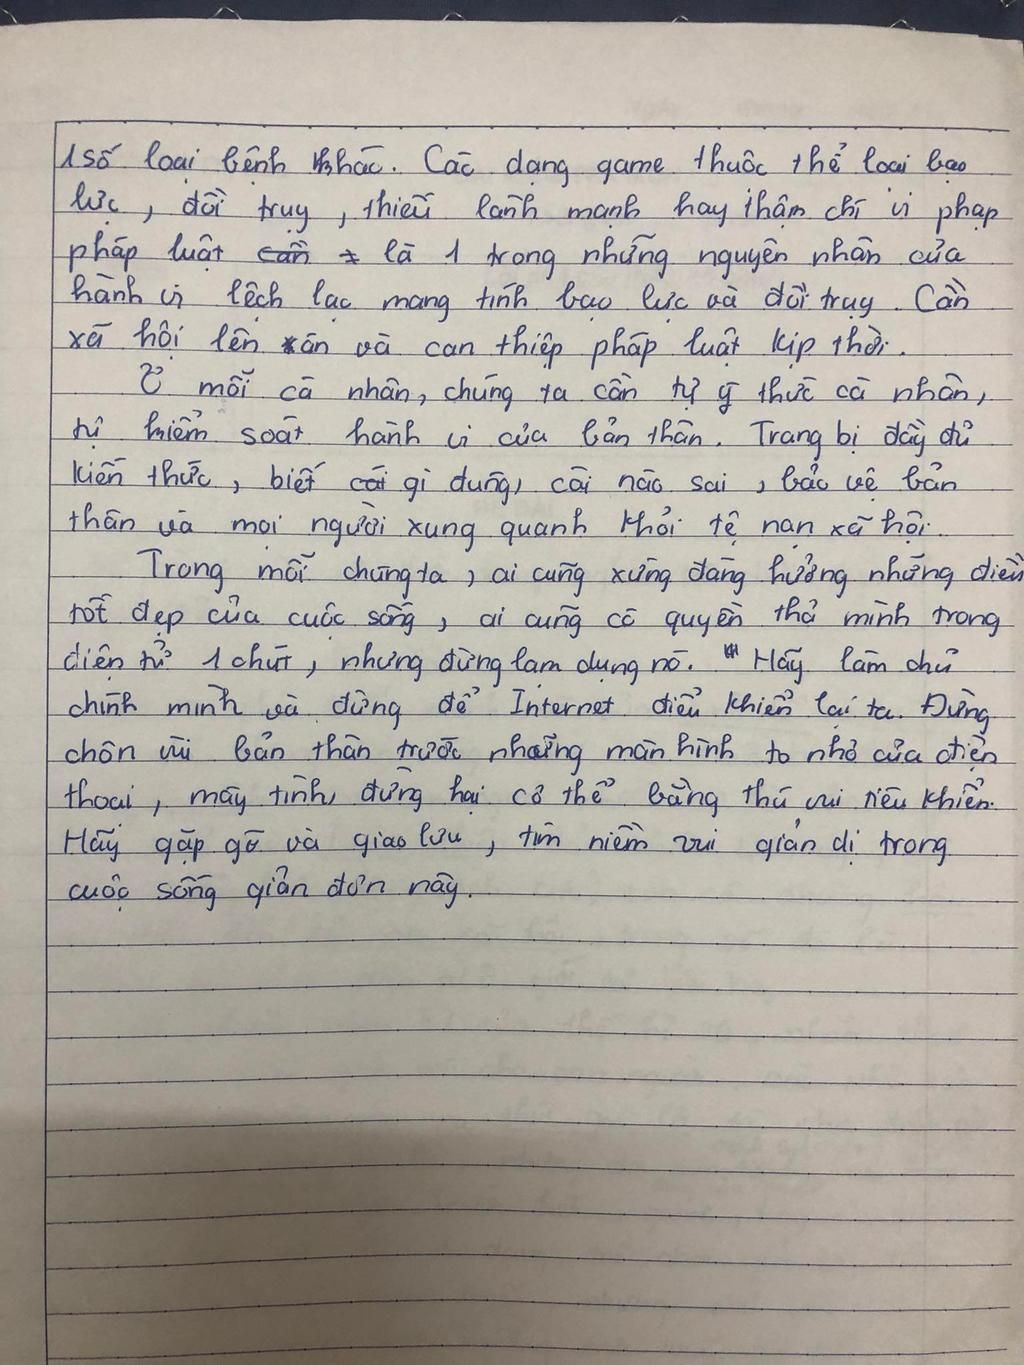 1 số loại bệnh khác. Các dạng game thuộc thể loại bạo
lực, đồi trụy, thiếu lành mạnh hay thậm chí vi phạp
pháp luật cần là 1 trong những nguyên nhân của
hành vi lệch lạc mang tính bạo lực và đồi trụy. Cần
xã hội lên án và can thiệp pháp luật kịp thời.
Ở mỗi cá nhân, chúng ta cần tự ý thức cá nhân,
tự kiểm soát hành vi của bản thân. Trang bị đầy đủ
kiến thức, biết cái gì đúng, cái nào sai, bảo vệ bản
thân và mọi người xung quanh khỏi tệ nạn xã hội.
Trong mỗi chúng ta, ai cũng xứng đáng hưởng những điều
tốt đẹp của cuộc sống, ai cũng có quyền thả mình trong
điện tử 1 chút, nhưng đừng lạm dụng nó. Hãy làm chủ
chính mình và đừng để Internet điều khiển lại ta. Đừng
chôn vùi bản thân trước những màn hình to nhỏ của điện
thoại, máy tính, đừng hại cơ thể bằng thú vui tiêu khiển.
Hãy gặp gỡ và giao lưu, tìm niềm vui giản dị trong
cuộc sống giản đơn này.